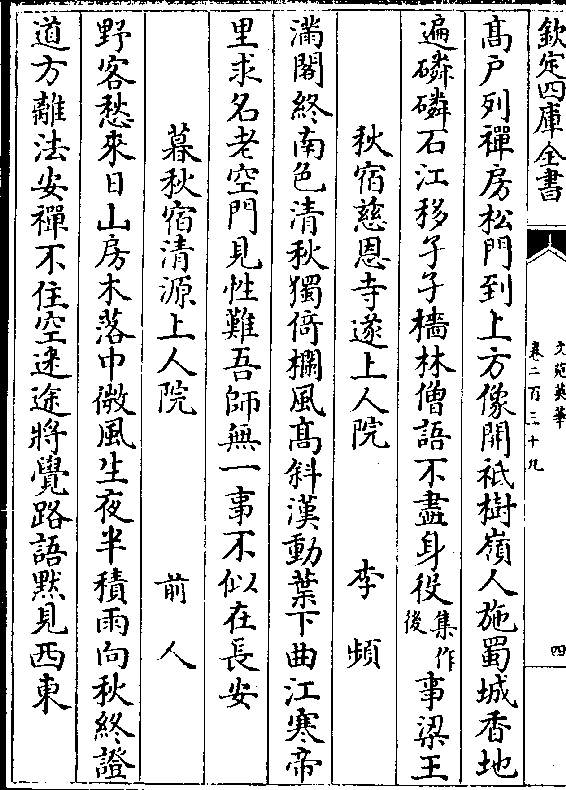 欽定四庫全書
文苑英華
卷二百三十九
四
髙戸列禪房松門到上方像開祇樹嶺人施蜀城香地
遍磷磷石江移孑孑檣林僧語不盡身役集作後事梁王
秋宿慈恩寺遂上人院 李頻
滿閣終南色清秋獨倚欄風髙斜漢動葉下曲江寒帝
里求名老空門見性難吾師無一事不似在長安
暮秋宿清源上人院 前人
野客愁來日山房木落中微風生夜半積雨向秋終證
道方離法安禪不住空迷途將覺路語默見西東